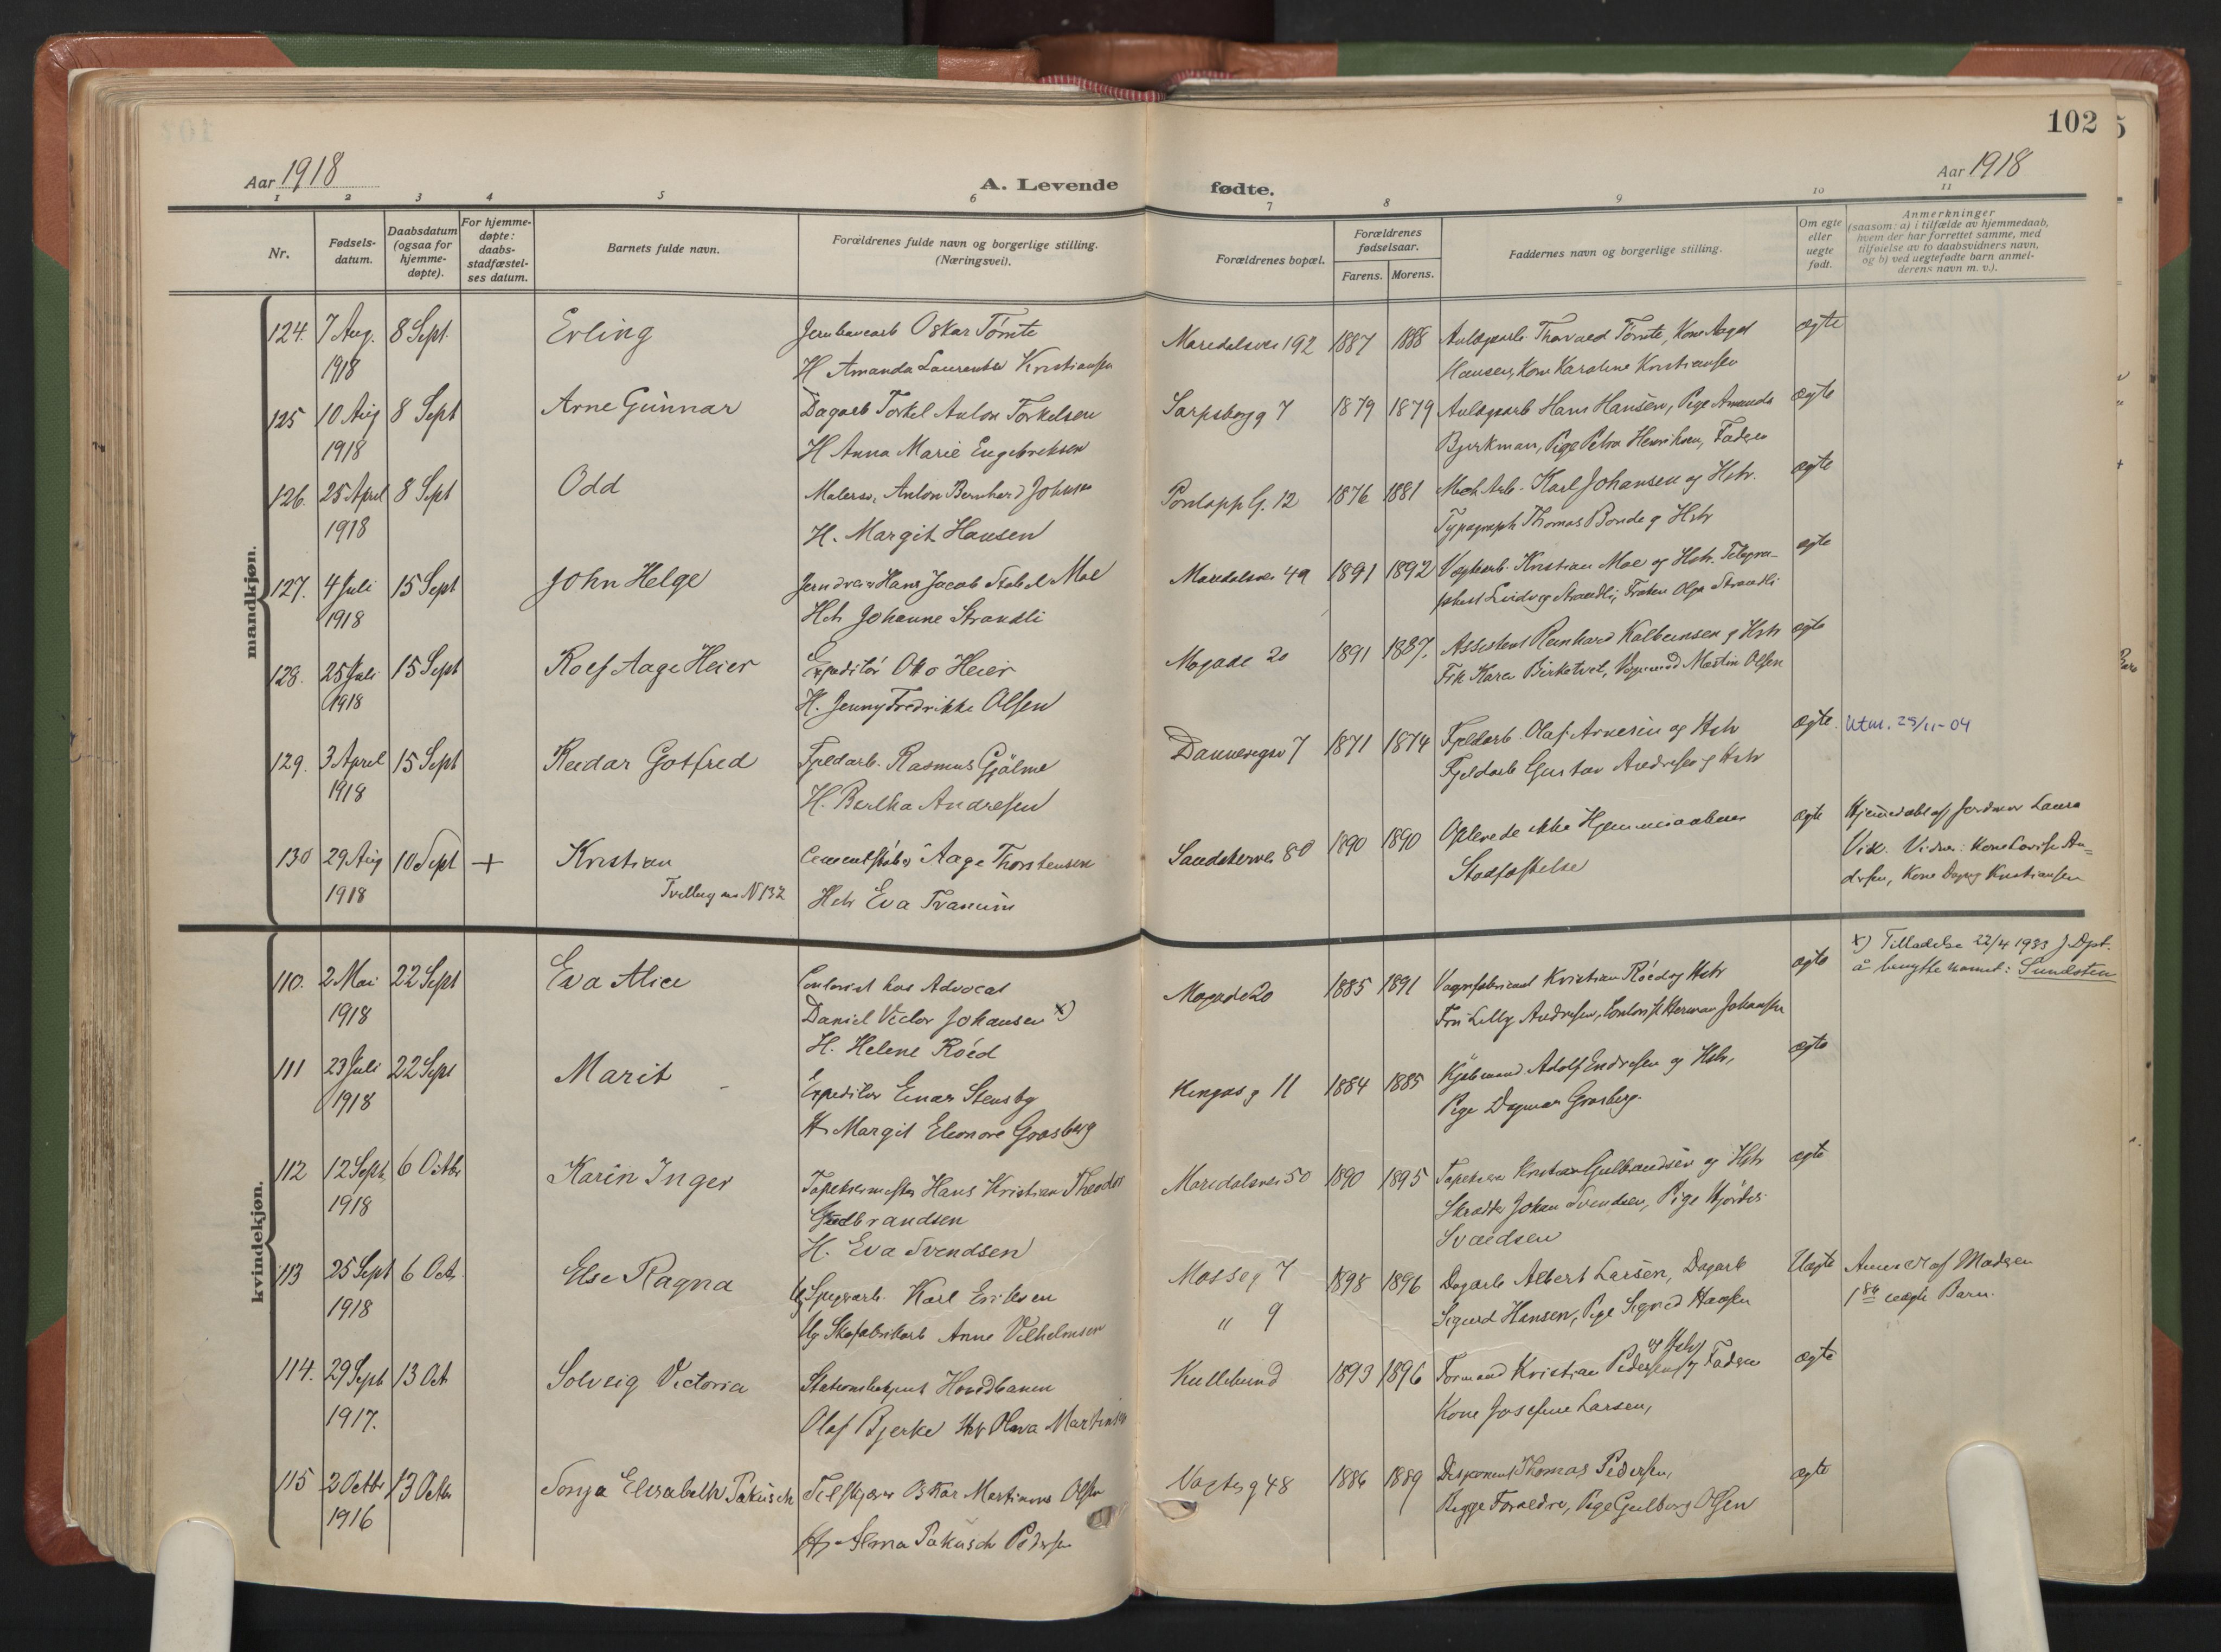 102
Aar 1918
A. Levende fødte.
Aar 1918
1 2 3 4 5 6 7 8 9 10 11
Nr.
Fødsels-
datum.
Daabsdatum
(ogsaa for
hjemme-
døpte).
For hjemme-
døpte:
daabs-
stadfæstel-
ses datum.
Barnets fulde navn.
Forældrenes fulde navn og borgerlige stilling.
(Næringsvei).
Forældrenes bopæl.
Forældrenes
fødselsaar.
Farens. Morens.
Faddernes navn og borgerlige stilling.
Om egte
eller
uegte
født.
Anmerkninger
(saasom: a) i tilfælde av hjemmedaab,
hvem der har forrettet samme, med
tilføielse av to daabsvidners navn,
og b) ved uegtefødte barn anmel-
derens navn m. v.).
mandkjøn.
124. 7 Aug. 8 Sept. Erling Jernbanearb Oskar Tömte Maridalsvei 192 1887 1888 Anlægsarb. Thorvald Tömte, Kone Aagot ægte
1918 H Amanda Laurentse Kristiansen Hansen, Kone Karoline Kristiansen
125 10 Aug 8 Sept Arne Gunnar Dagarb Torkel Anton Torkelsen Sarpsborg g 7 1879 1879 Anlægsarb Hans Hansen, Pige Amanda ægte
1918 H Anna Marie Engebretsen Bjerkman, Pige Petra Henriksen, Faderen
126. 25 April 8 Sept Odd Malersv. Anton Bernhard Johnsen G. 12 1876 1881 Mek Arb. Karl Johansen og Hstr. ægte
1918 H. Margit Hansen Typograph Thomas Bonde og Hstr
127. 4 Juli 15 Sept John Helge Jerndreier Hans Jacob Stabel Moe Maridalsvei 49 1891 1892 Kristian Moe og Hstr. Telegra- ægte
1918 Hstr Johanne Strandli Ludvig Strandli, Frøken Olga Strandli
128. 25 Juli 15 Sept Rolf Aage Heier Expeditör Otto Heier Mogade 20 1891 1887. Assistent Reinhard Kolbeinsen og Hstr ægte
1918 H. Jenny Fredrikke Olsen Frk Kara Birketvet, Martin Olsen
129. 3 April 15 Sept Reidar Gotfred Fjeldarb. Rasmus Gjölme Dannevigsv 7 1871 1874 Fjeldarb. Olaf Arnesen og Hstr ægte. Utm. 29/11-04
1918 H. Bertha Andresen Fjeldarb Gustav Andresen og Hstr
130 29 Aug 10 Sept + Kristian Cementstöber Aage Thorstensen Sandakerve 80 1890 1890 Oplevede ikke Hjemmedaabens ægte Hjemmedøbt af Jordmor Laura
1918 Tvilling m N 132 Hstr Eva Tranum Stadfæstelse
Vik. Vidner: Kone Lovise An=
dersen, Kone Dagny Kristiansen
kvindekjøn.
110. 2 Mai 22 Sept Eva Alice Contorist hos Advocat Mogade 20 1885 1891 Vognfabricant Kristian Röed og Hstr ægte x) Tilladelse 22/4 1933 J Dpt.
1918 Daniel Victor Johansen x) Fru Lilly Andresen, Contorist Herman Johansen å benytte navnet: Sundsten
H. Helene Röed
111 23 Juli 22 Sept Marit Expeditör Einar Stensby g 11 1884 1885 Kjøbmand Adolf Endresen og Hstr, ægte
1918 H Margit Eleonore Grosberg Pige Dagmar Grosberg.
112 12 Sept, 6 Octbr Karin Inger Tapetserermester Hans Kristian Theodor Maridalsvei 50 1890 1895 Tapetserer Kristian Gulbrandsen og Hstr ægte
1918 Gudbrandsen Skrædder Johan Svendsen, Pige Hjördis
H. Eva Svendsen Svendsen
113 25 Sept 6 Oct. Else Ragna Ug Karl Eriksen Mosseg 7 1898 1896 Dagarb Albert Larsen, Dagarb Uægte Anmeldt af Moderen
1918 Ug Skofabrikarb Anne Vilhelmsen " 9 Sigurd Hansen, Pige Sigrid Hansen 1ste uægte Barn.
114. 29 Sept 13 Oct Solveig Victoria Stationsbetjent Hovedbanen Kullebund 1893 1896 Formand Kristian Pedersen og Hstr, Faderen ægte
1917. Olaf Bjerke Hstr Olava Martinsen Kone Josefine Larsen,
115 2 Octbr 13 Octbr Sonja Elisabeth Pakusch Feilskjærer Oskar Martinius Olsen Vogtsg 48 1886 1889 Disponent Thomas Pedersen, ægte
1916 H. Alma Pakusch Pedersen Begge Forældre, Pige Gulborg Olsen